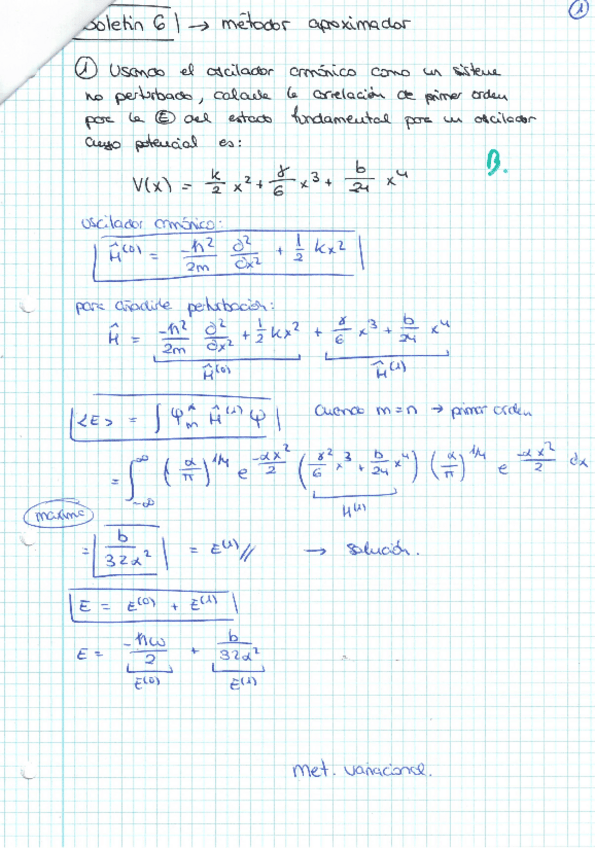 ①
Boletín 6 | → métodos aproximados
① Usando el oscilador armónico como un sistema
no perturbado, calcula la correlación de primer orden
para la E del estado fundamental para un oscilador
cuyo potencial es:
B.
V(x) = k/2 x² + γ/6 x³ + b/24 x⁴
oscilador armónico:
Ĥ⁽⁰⁾ = -ħ²/2m ∂²/∂x² + 1/2 kx²
para añadirle perturbación:
Ĥ = -ħ²/2m ∂²/∂x² + 1/2 kx² + γ/6 x³ + b/24 x⁴
Ĥ⁽⁰⁾ Ĥ⁽¹⁾
<E> = ∫ φₘ* Ĥ⁽¹⁾ φ | cuando m=n → primer orden
= ∫_{-∞}^{∞} (α/π)^{1/4} e^{-αx²/2} (γ²/6 x³ + b/24 x⁴) (α/π)^{1/4} e^{-αx²/2} dx
H⁽¹⁾
maxima
= | b/32α² | = E⁽¹⁾// → solución.
E = E⁽⁰⁾ + E⁽¹⁾
E = -ħω/2 + b/32α²
E⁽⁰⁾ E⁽¹⁾
Met. variacional.